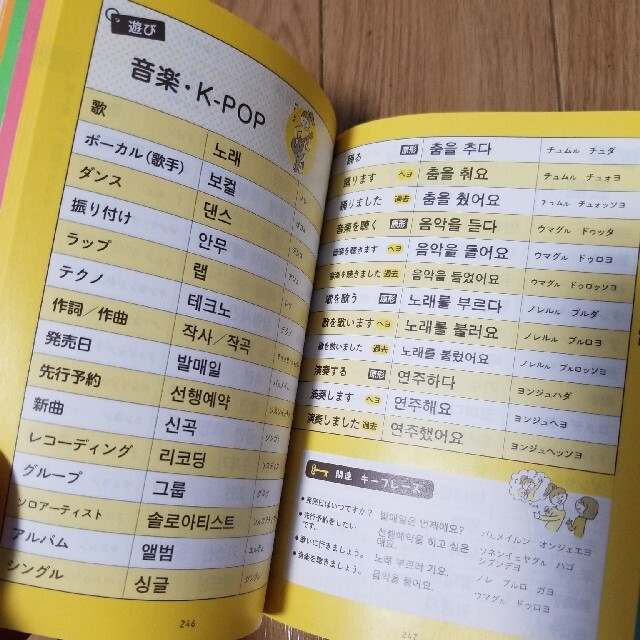 遊び
音楽・K-POP
歌 노래
ボーカル(歌手) 보컬
ダンス 댄스
振り付け 안무
ラップ 랩
テクノ 테크노
作詞／作曲 작사／작곡
発売日 발매일
先行予約 선행예약
新曲 신곡
レコーディング 리코딩
グループ 그룹
ソロアーティスト 솔로아티스트
アルバム 앨범
シングル 싱글
246
踊る 原形 춤을 추다 チュムル チュダ
踊ります ヘヨ 춤을 춰요 チュムル チュオヨ
踊りました 過去 춤을 췄어요 チュムル チュオッソヨ
音楽を聴く 原形 음악을 듣다 ウマグル ドゥッタ
音楽を聴きます ヘヨ 음악을 들어요 ウマグル ドゥロヨ
音楽を聴きました 過去 음악을 들었어요 ウマグル ドゥロッソヨ
歌を歌う 原形 노래를 부르다 ノレルル ブルダ
歌を歌います ヘヨ 노래를 불러요 ノレルル ブルロヨ
歌を歌いました 過去 노래를 불렀어요 ノレルル ブルロッソヨ
演奏する 原形 연주하다 ヨンジュハダ
演奏します ヘヨ 연주해요 ヨンジュヘヨ
演奏しました 過去 연주했어요 ヨンジュヘッソヨ
関連 キーフレーズ
●発売日はいつですか？ 발매일은 언제예요? バルメイルン オンジェエヨ
●先行予約をしたいです。 선행예약을 하고 싶은데요.
●歌いに行きましょう。 노래 부르러 가요. ノレ ブルロ ガヨ
●音楽を聴きましょう。 음악을 들어요. ウマグル ドゥロヨ
247